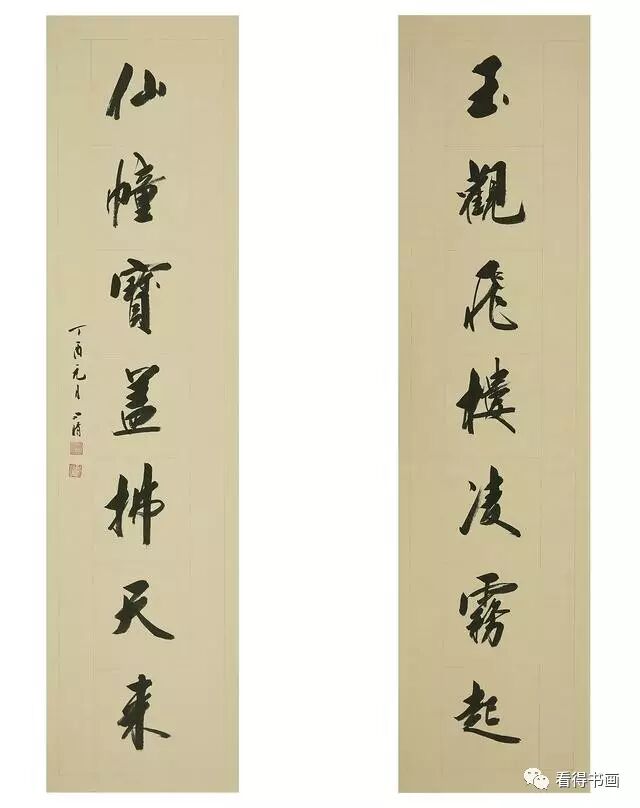 玉觀飛樓凌霧起
仙幢寶盖拂天来
丁酉元月
看得书画